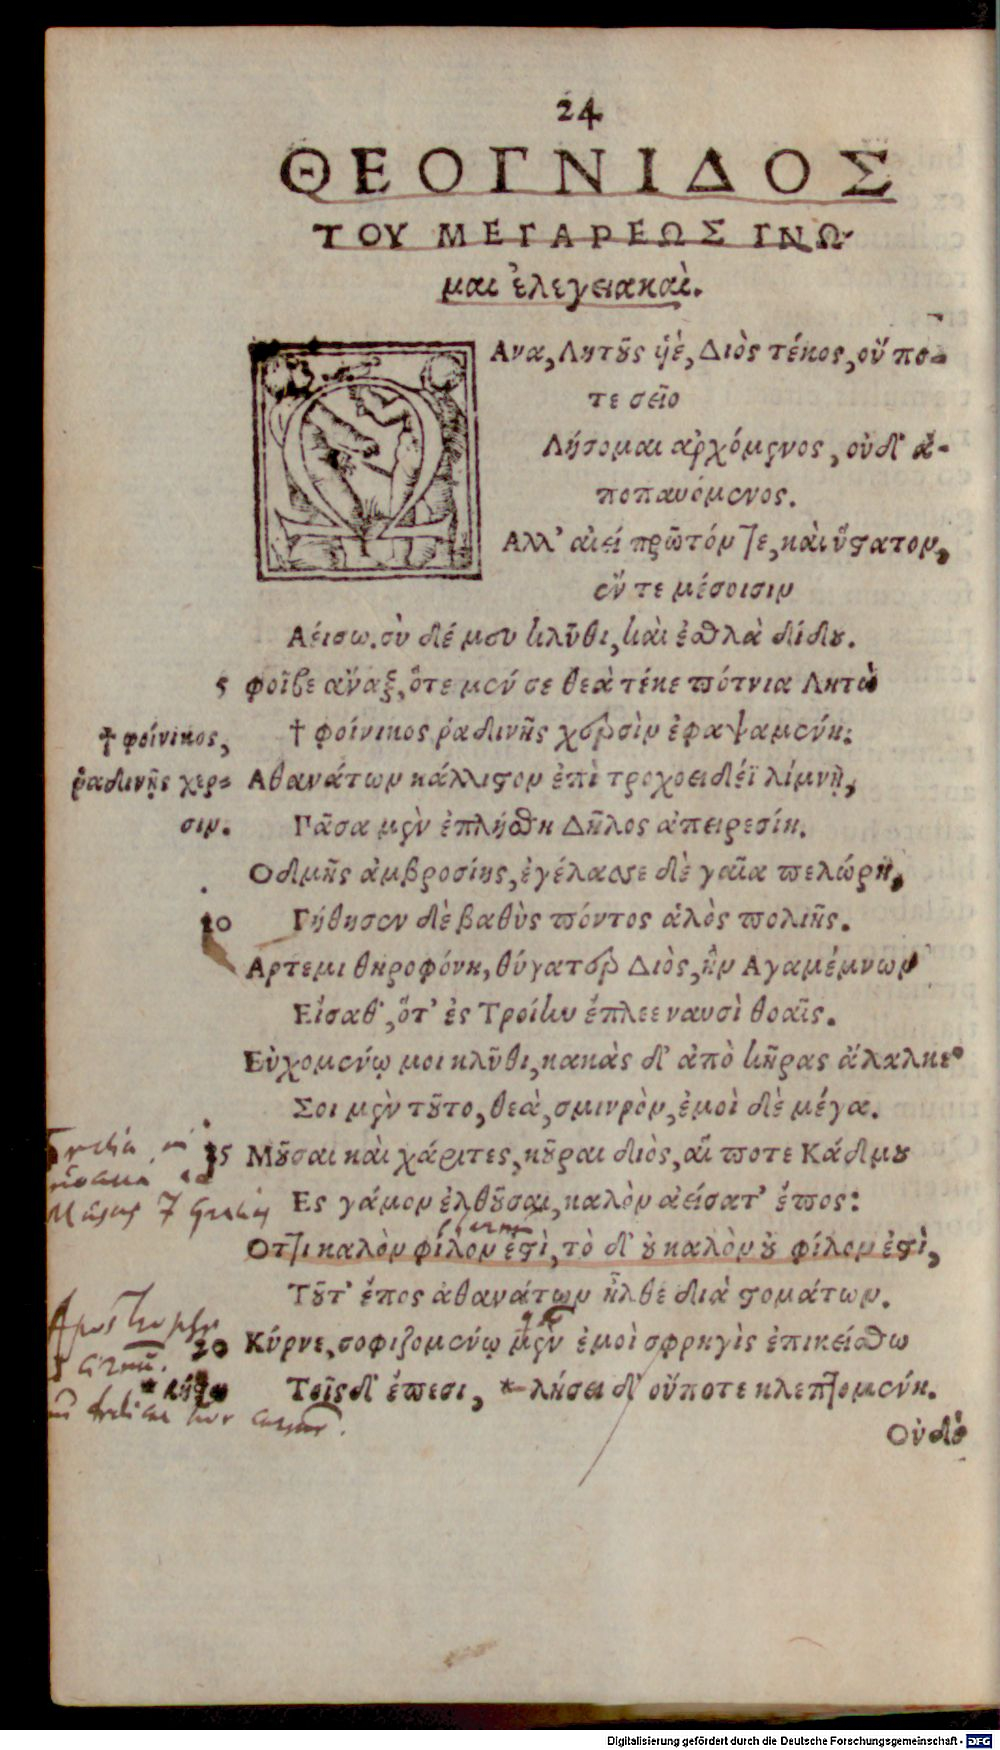 24
ΘΕΟΓΝΙΔΟΣ
ΤΟΥ ΜΕΓΑΡΕΩΣ ΓΝΩ-
μαι ἐλεγειακαὶ.
Ω Ανα, Λητοῦς ὑὲ, Διὸς τέκος, οὔ πο-
τε σεῖο
Λήσομαι ἀρχόμενος, οὐδ' ἀ-
ποπαυόμενος.
Αλλ' αἰεί πρῶτόν τε, καὶ ὕστατον,
ἔν τε μέσοισιν
Αείσω. σὺ δέ μου κλῦθι, καὶ ἐσθλὰ δίδου.
5 φοῖβε ἄναξ, ὅτε μέν σε θεὰ τέκε πότνια Λητὼ
† φοίνικος,
† φοίνικος ῥαδινῆς χερσὶν ἐφαψαμένη:
ῥαδινῆς χερ-
Αθανάτων κάλλιστον ἐπὶ τροχοειδέϊ λίμνῃ,
σιν.
Γᾶσα μὲν ἐπλήσθη Δῆλος ἀπειρεσίη.
Οδμῆς ἀμβροσίης, ἐγέλασσε δὲ γαῖα πελώρη,
10 Γήθησεν δὲ βαθὺς πόντος ἁλὸς πολιῆς.
Αρτεμι θηροφόνη, θύγατερ Διὸς, ἣν Αγαμέμνων
Εἵσαθ', ὅτ' ἐς Τροίην ἔπλεε ναυσὶ θοαῖς.
Εὐχομένῳ μοι κλῦθι, κακὰς δ' ἀπὸ κῆρας ἄλαλκε
Σοι μὲν τοῦτο, θεὰ, σμικρὸν, ἐμοὶ δὲ μέγα.
15 Μοῦσαι καὶ χάριτες, κοῦραι διὸς, αἵ ποτε Κάδμου
Ες γάμον ἐλθοῦσαι, καλὸν ἀείσατ' ἔπος:
Οτι καλὸν φίλον ἐστὶ, τὸ δ' οὐ καλὸν οὐ φίλον ἐστὶ,
Τοῦτ' ἔπος ἀθανάτων ἦλθε διὰ στομάτων.
20 Κύρνε, σοφιζομένῳ μὲν ἐμοὶ σφρηγὶς ἐπικείσθω
Τοῖς δ' ἔπεσι, * λήσει δ' οὔποτε κλεπτομένη.
Οὐδέ
Digitalisierung gefördert durch die Deutsche Forschungsgemeinschaft - DFG